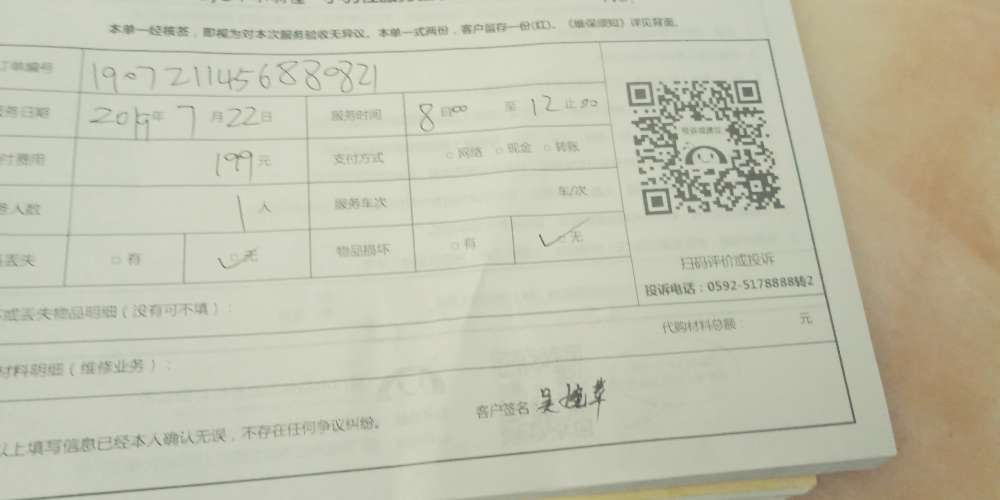 本单一经核签，即视为对本次服务验收无异议。本单一式两份，客户留存一份(红)。《维保须知》详见背面。
订单编号 1907211456880821
服务日期 2019年 7月22日 服务时间 8时00 至 12止00
付费用 199元 支付方式 □网络 □现金 □转账
务人数 1人 服务车次 车/次
丢失 □有 ☑无 物品损坏 □有 ☑无
扫码评价或投诉
投诉电话：0592-5178888转2
或丢失物品明细（没有可不填）：
代购材料总额： 元
材料明细（维修业务）：
客户签名
以上填写信息已经本人确认无误，不存在任何争议纠纷。